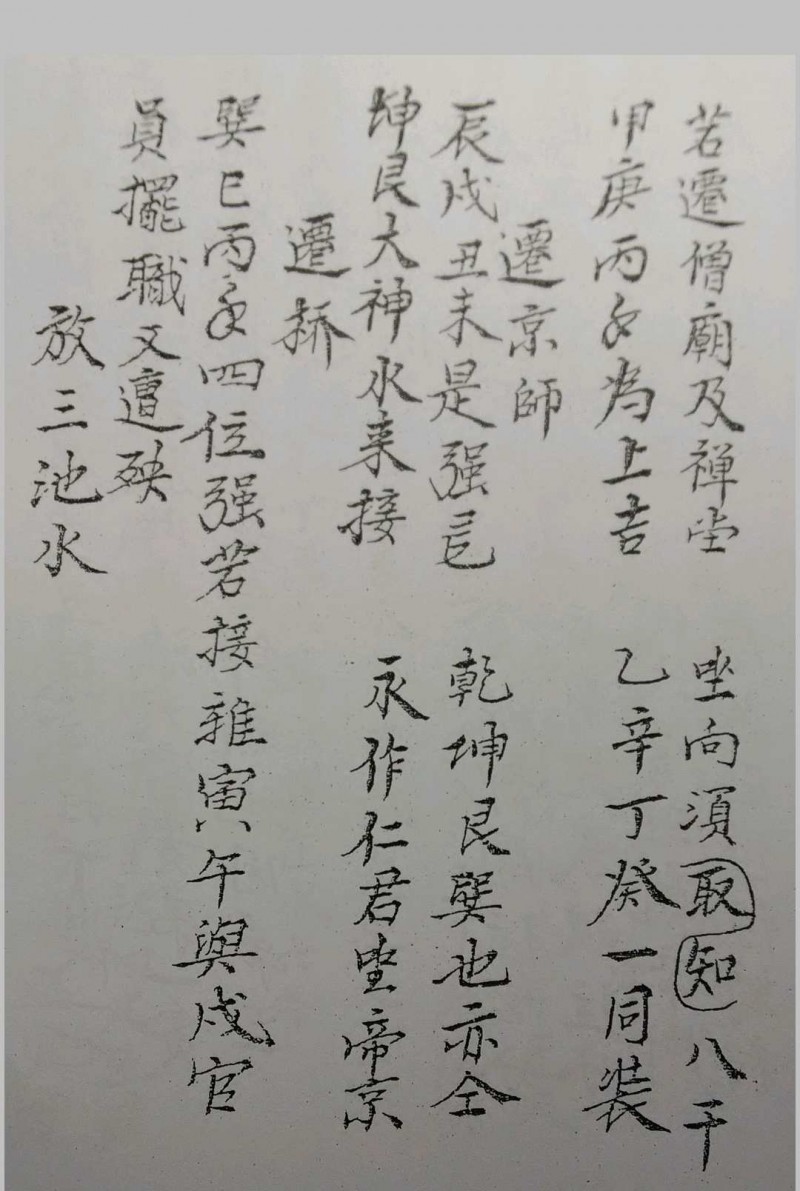 若遷僧廟及禅堂 坐向須取知八干
甲庚丙壬为上吉 乙辛丁癸一同装
遷京師
辰戌丑未是强 乾坤艮巽也亦全
坤艮大神水来接 永作仁君坐帝京
遷
巽巳丙 四位强若接雜寅午與戌官
員擺職又遭殃
放三池水